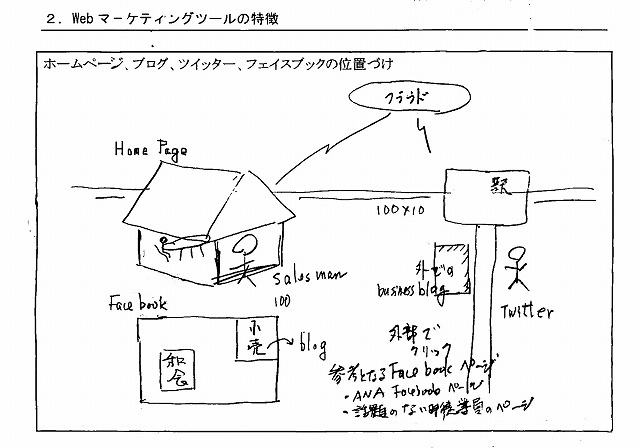 ２．Webマーケティングツールの特徴
ホームページ、ブログ、ツイッター、フェイスブックの位置づけ
クラウド
Home Page
駅
100×10
外での
business blog
Salesman
100
Twitter
Facebook
小売
blog
外部で
クリック
参考となるFacebookページ
・ANA Facebookページ
・話題のない時 のページ